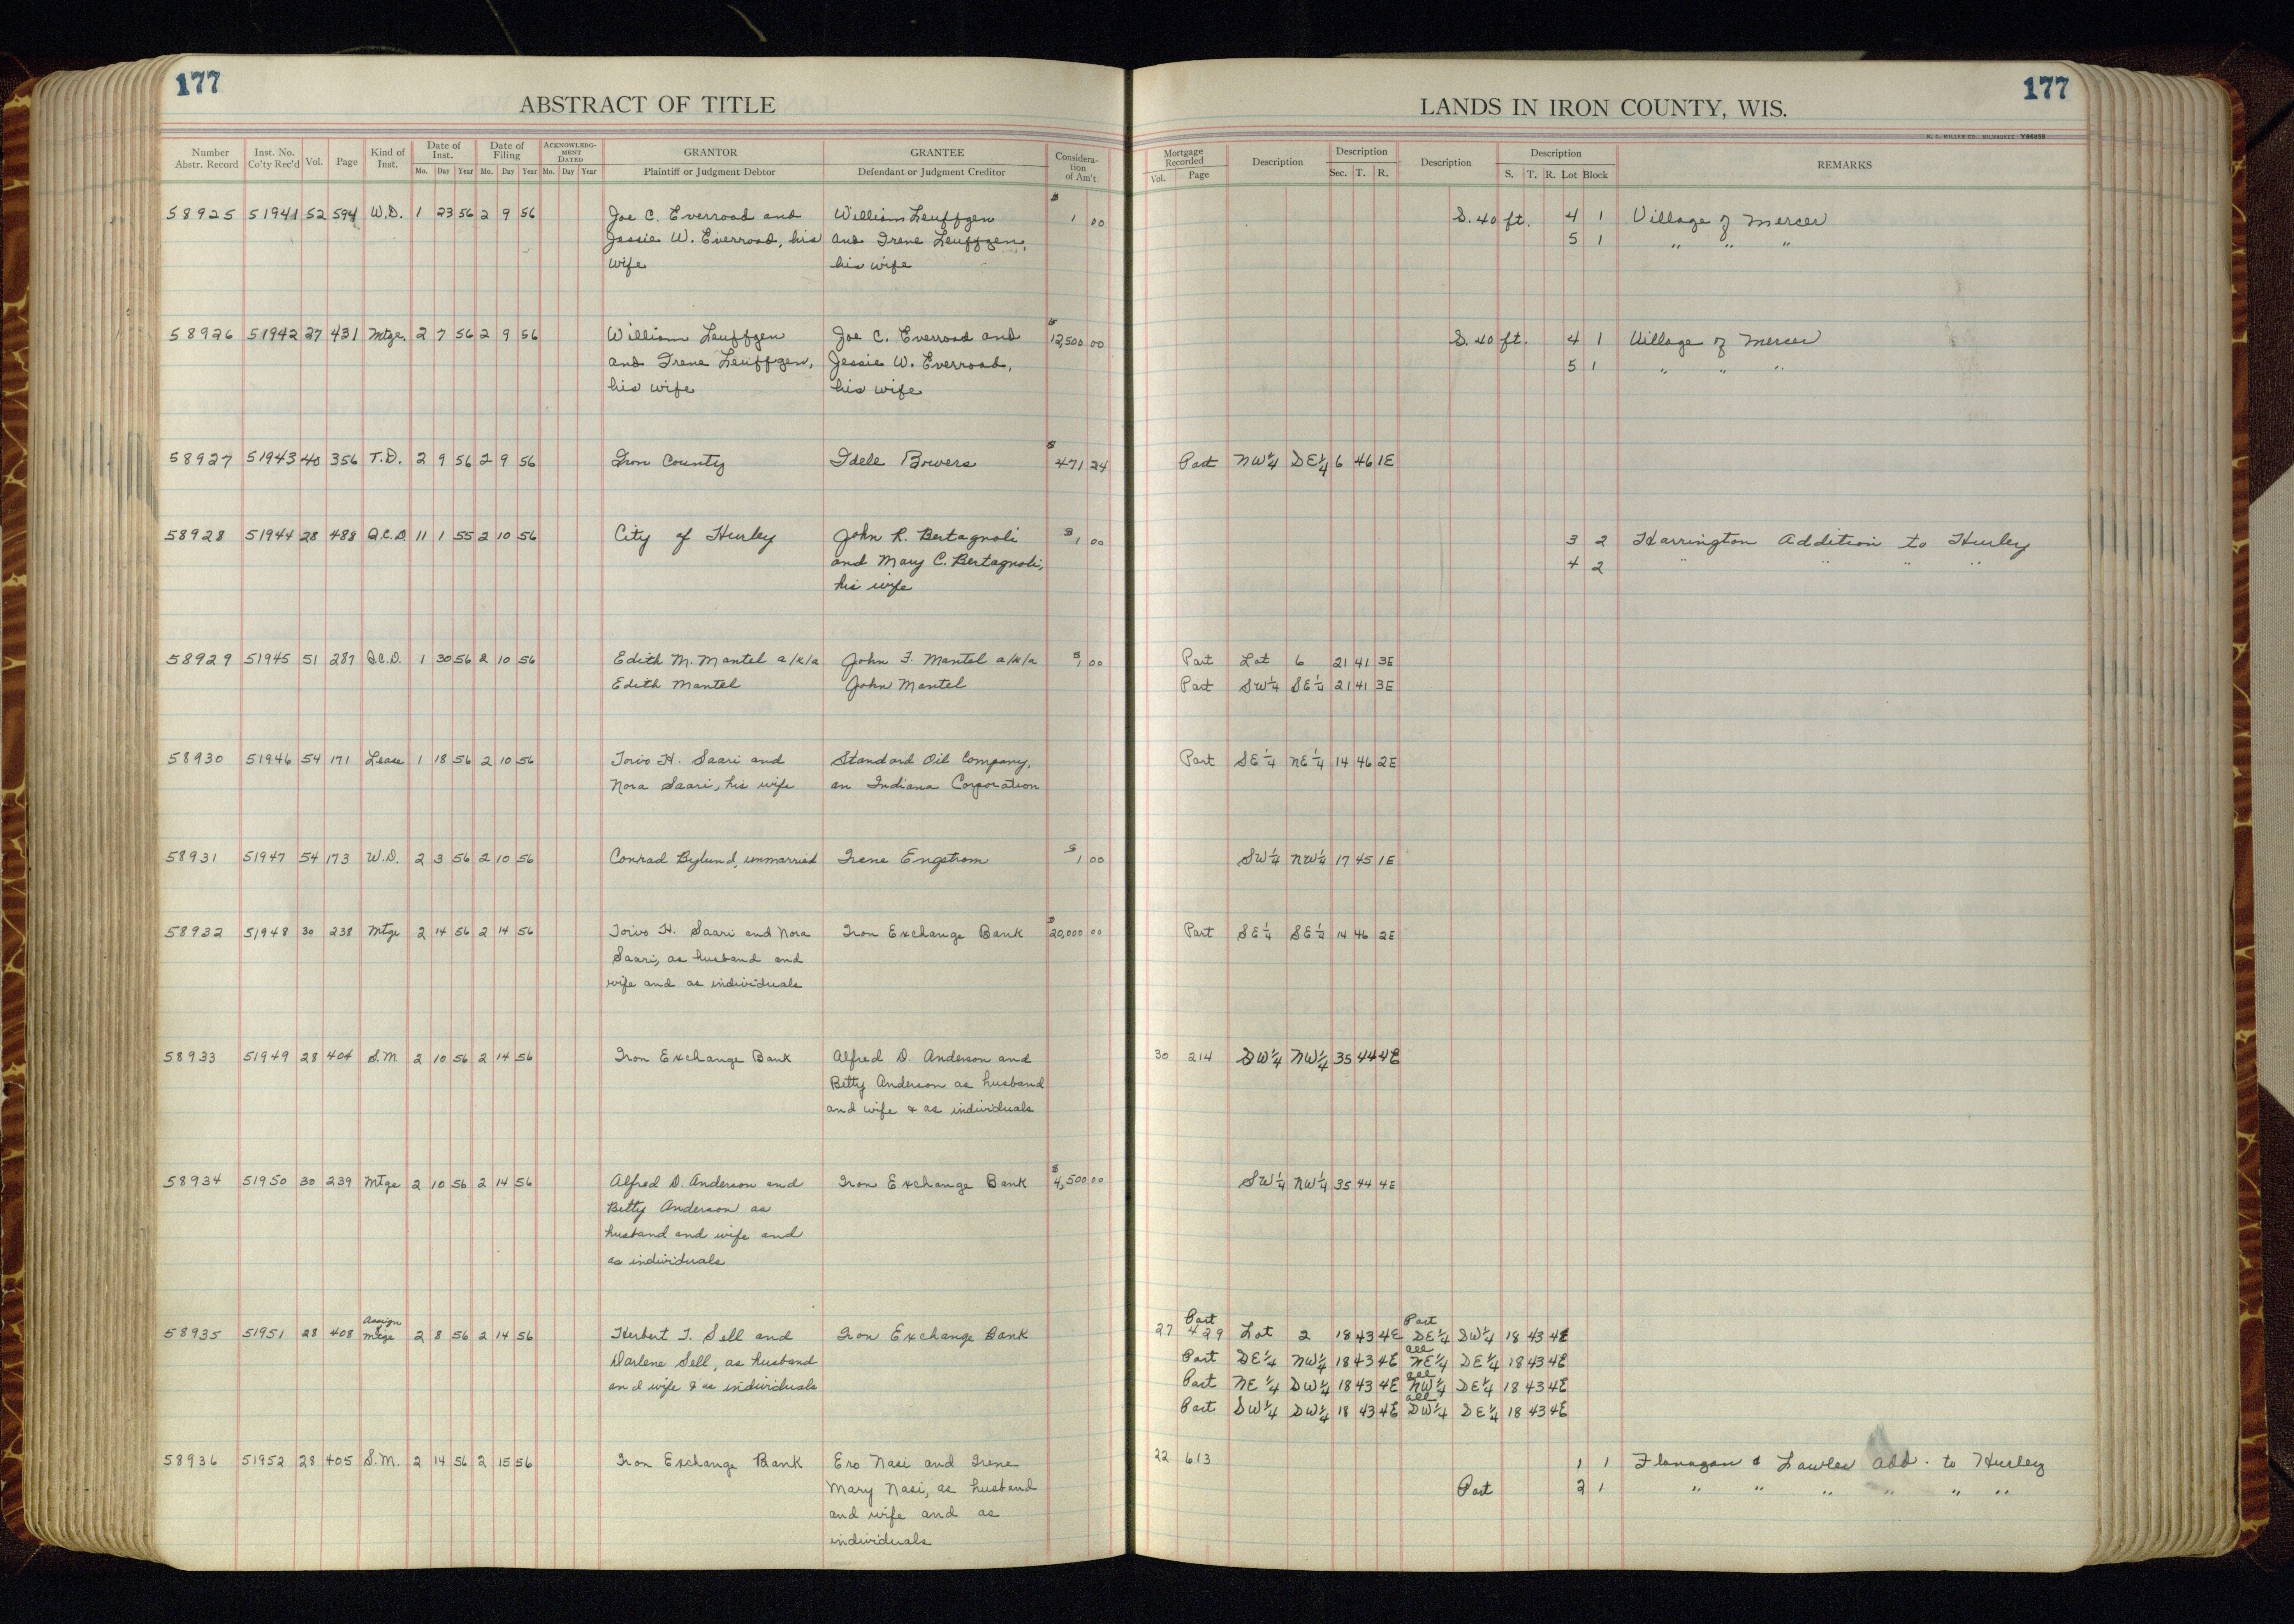 177
ABSTRACT OF TITLE
Number Abstr. Record Inst. No. Co'ty Rec'd Vol. Page Kind of Inst. Date of Inst. Mo. Day Year Date of Filing Mo. Day Year ACKNOWLEDGMENT DATED Mo. Day Year GRANTOR Plaintiff or Judgment Debtor GRANTEE Defendant or Judgment Creditor Consideration of Am't
177
LANDS IN IRON COUNTY, WIS.
H. C. MILLER CO., MILWAUKEE Y66059
Mortgage Recorded Vol. Page Description Description Sec. T. R. Description Description S. T. R. Lot Block REMARKS
58925 51941 52 594 W.D. 1 23 56 2 9 56 Joe C. Everroad and William Leuffgen $1 00 S. 40 ft. 4 1 Village of Mercer
Jessie W. Everroad, his and Irene Leuffgen, 5 1 " " "
wife his wife
58926 51942 27 431 Mtge. 2 7 56 2 9 56 William Leuffgen Joe C. Everroad and $12,500 00 S. 40 ft. 4 1 Village of Mercer
and Irene Leuffgen, Jessie W. Everroad, 5 1 " " "
his wife his wife
58927 51943 40 356 T.D. 2 9 56 2 9 56 Iron County Idele Bowers $471 24 Part NW¼ SE¼ 6 46 1E
58928 51944 28 488 Q.C.D. 11 1 55 2 10 56 City of Hurley John R. Bertagnoli $1 00 3 2 Harrington Addition to Hurley
and Mary C. Bertagnoli, 4 2 " " " "
his wife
58929 51945 51 287 Q.C.D. 1 30 56 2 10 56 Edith M. Mantel a/k/a John F. Mantel a/k/a $1 00 Part Lot 6 21 41 3E
Edith Mantel John Mantel Part SW¼ SE¼ 21 41 3E
58930 51946 54 171 Lease 1 18 56 2 10 56 Toivo H. Saari and Standard Oil Company, Part SE¼ NE¼ 14 46 2E
Nora Saari, his wife an Indiana Corporation
58931 51947 54 173 W.D. 2 3 56 2 10 56 Conrad Bylund, unmarried Irene Engstrom $1 00 SW¼ NW¼ 17 45 1E
58932 51948 30 238 Mtge 2 14 56 2 14 56 Toivo H. Saari and Nora Iron Exchange Bank $20,000 00 Part SE¼ SE¼ 14 46 2E
Saari, as husband and
wife and as individuals
58933 51949 28 404 S.M 2 10 56 2 14 56 Iron Exchange Bank Alfred D. Anderson and 30 214 SW¼ NW¼ 35 44 4E
Betty Anderson as husband
and wife & as individuals
58934 51950 30 239 Mtge 2 10 56 2 14 56 Alfred D. Anderson and Iron Exchange Bank $4,500 00 SW¼ NW¼ 35 44 4E
Betty Anderson as
husband and wife and
as individuals
58935 51951 28 408 Assign of Mtge 2 8 56 2 14 56 Herbert T. Sell and Iron Exchange Bank 27 429 Part Lot 2 18 43 4E Part SE¼ SW¼ 18 43 4E
Darlene Sell, as husband Part SE¼ NW¼ 18 43 4E all NE¼ SE¼ 18 43 4E
and wife & as individuals Part NE¼ SW¼ 18 43 4E all NW¼ SE¼ 18 43 4E
Part SW¼ SW¼ 18 43 4E all SW¼ SE¼ 18 43 4E
58936 51952 28 405 S.M. 2 14 56 2 15 56 Iron Exchange Bank Ero Nasi and Irene 22 613 1 1 Flanagan & Lawler Add. to Hurley
Mary Nasi, as husband Part 2 1 " " " " " "
and wife and as
individuals